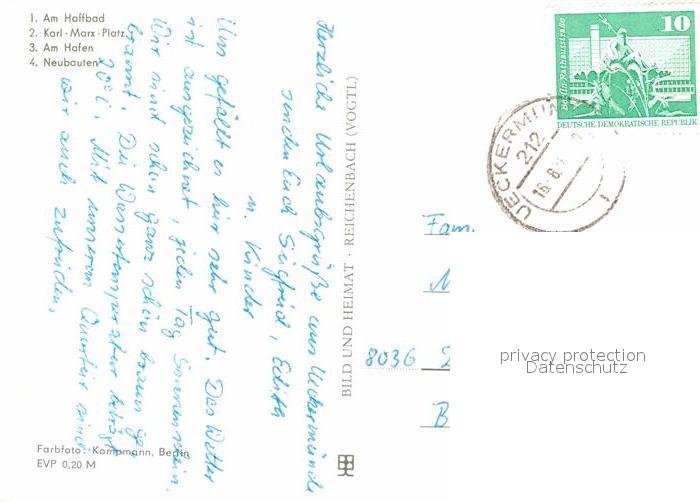 1. Am Haffbad
2. Karl-Marx-Platz
3. Am Hafen
4. Neubauten
Herzliche Urlaubsgrüße aus Ueckermünde
senden Euch Siegfried, Edith
u. Kinder
Uns gefällt es hier sehr gut. Das Wetter
ist ausgezeichnet, jeden Tag Sonnenschein.
Wir sind schon ganz schön braun ge-
brannt. Die Wassertemperatur beträgt
20°C. Mit unserem Quartier sind
wir auch zufrieden.
Farbfoto: Kampmann, Berlin
EVP 0,20 M
BILD UND HEIMAT · REICHENBACH (VOGTL)
Berlin, Rathausstraße
10
DEUTSCHE DEMOKRATISCHE REPUBLIK
UECKERMÜN
212
16.8.
Fam.
8036
B
privacy protection
Datenschutz